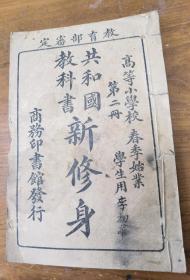 定審部育教
高等小學校 春季始業
第二冊 學生用
共和國
教科書
新修身
商務印書館發行